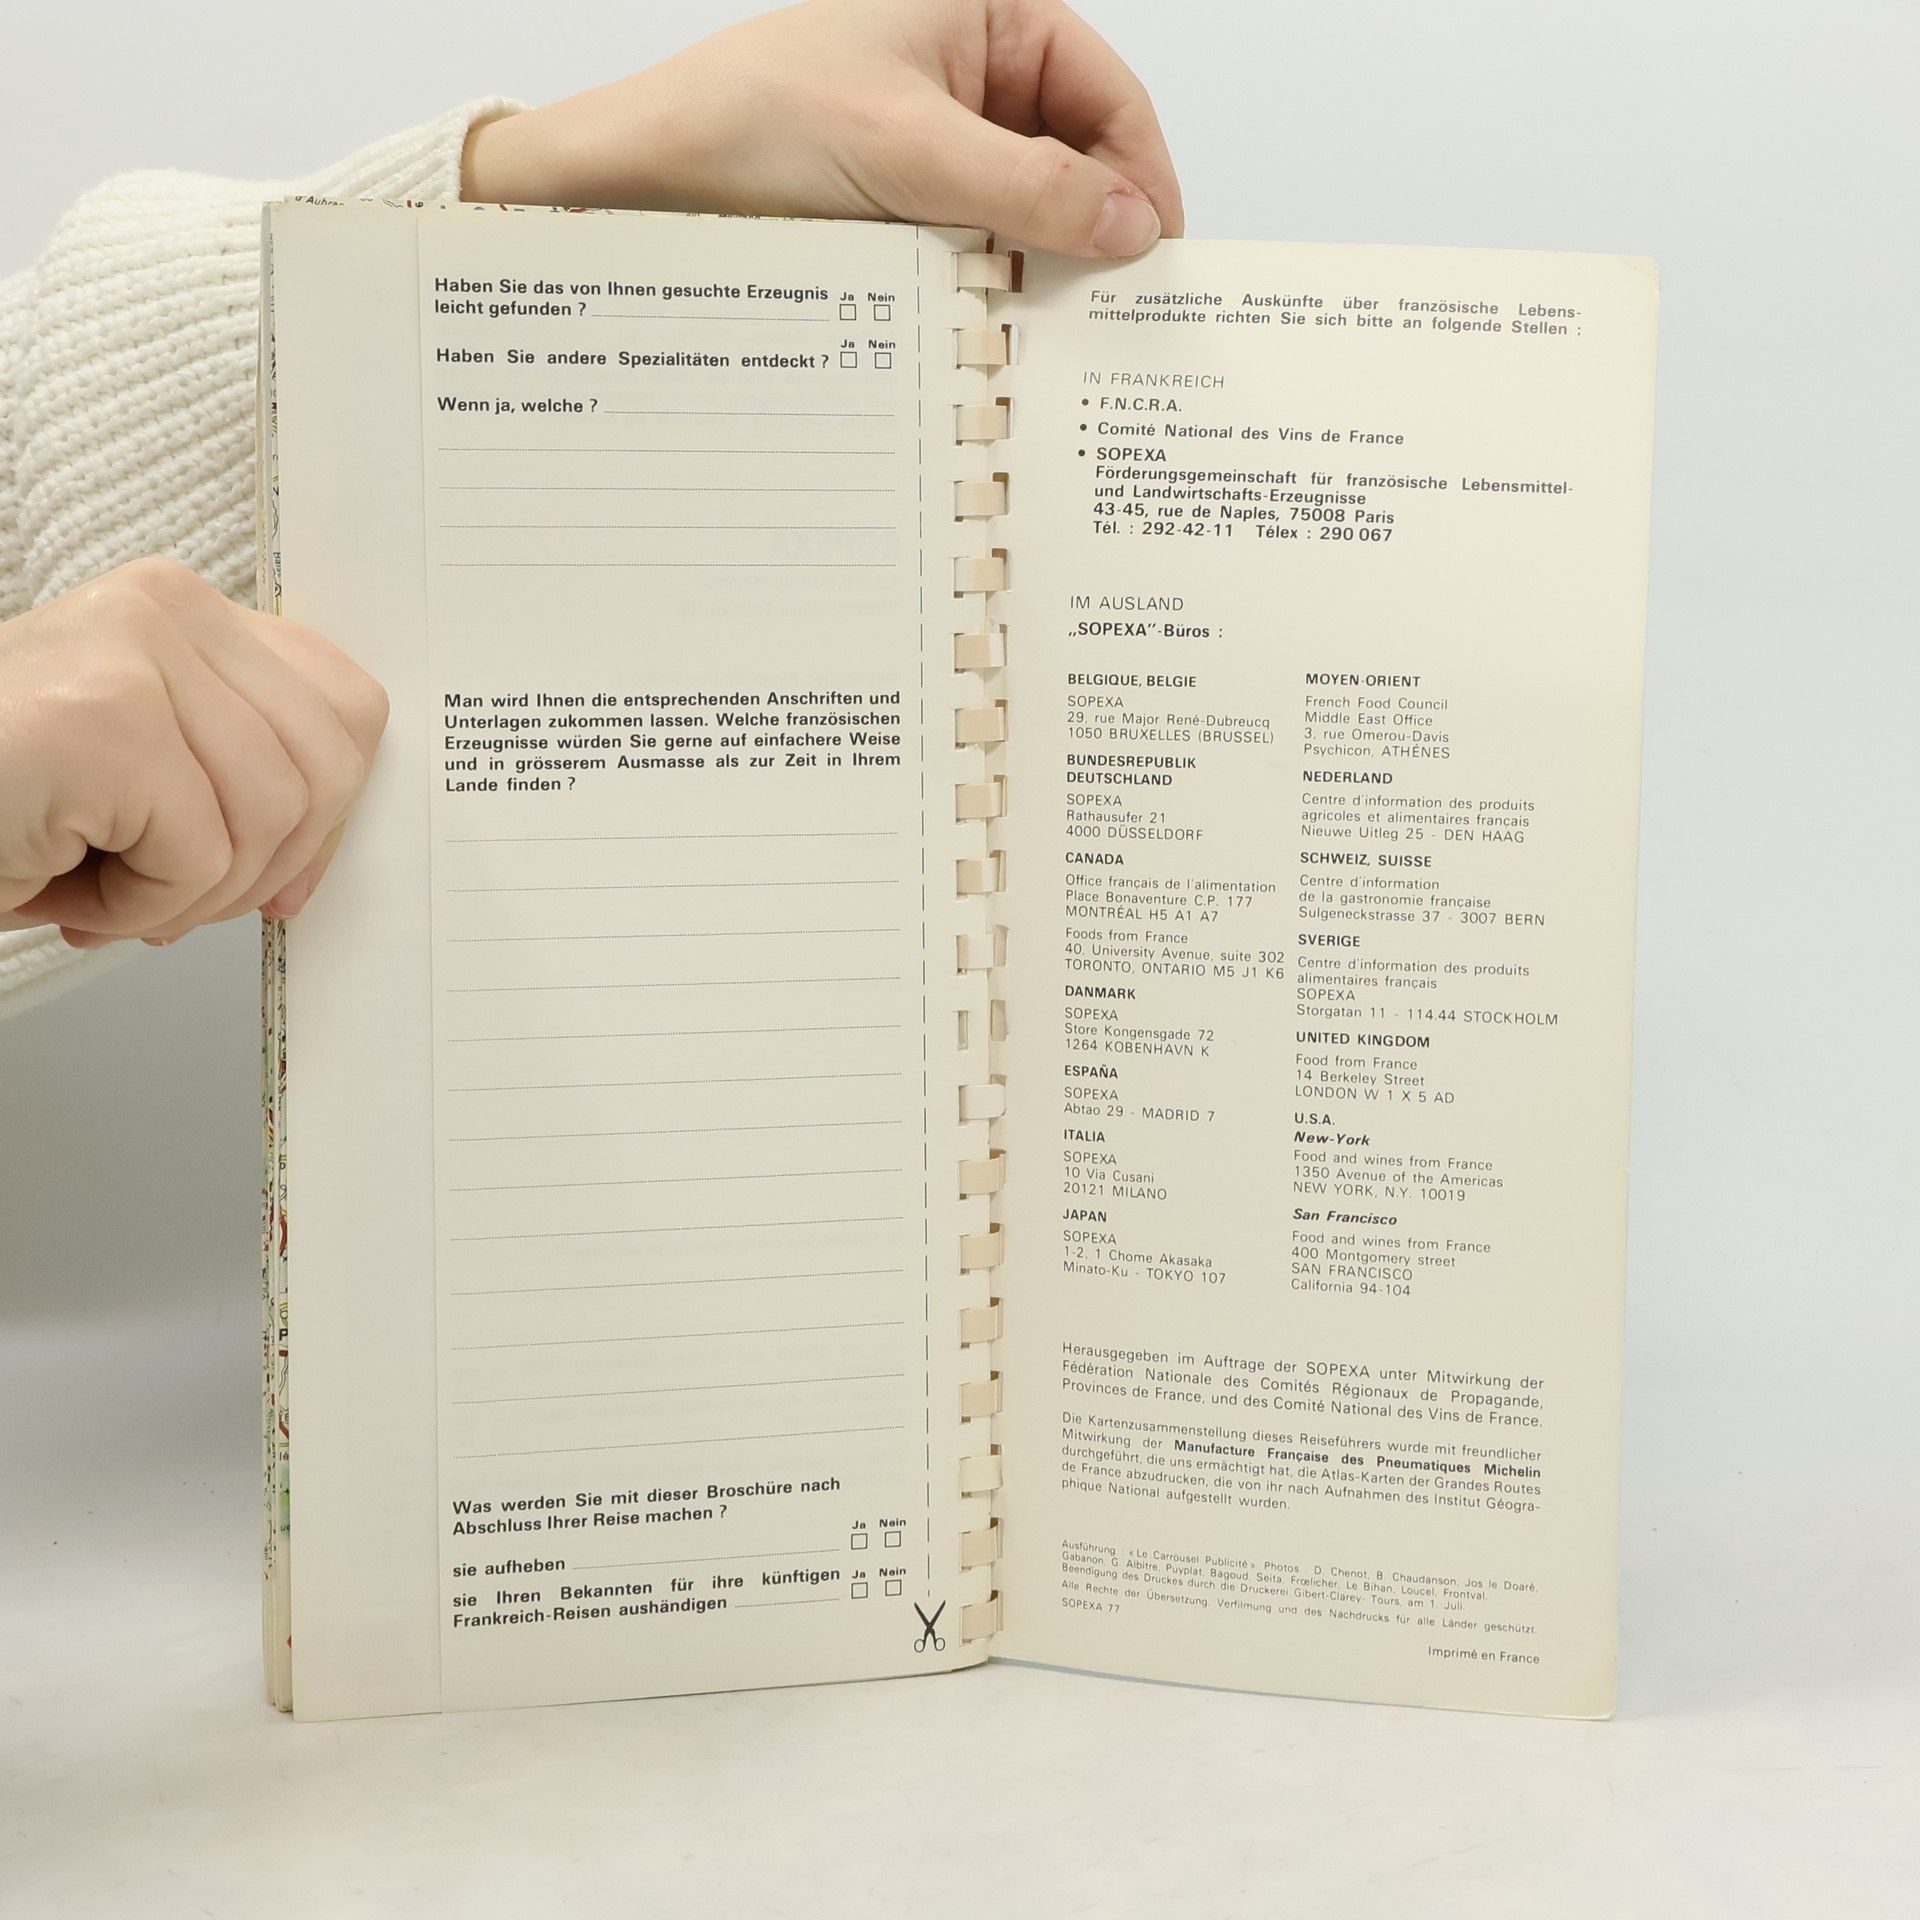 Aubrac
Haben Sie das von Ihnen gesuchte Erzeugnis Ja Nein
leicht gefunden ?
Haben Sie andere Spezialitäten entdeckt ? Ja Nein
Wenn ja, welche ?
Man wird Ihnen die entsprechenden Anschriften und
Unterlagen zukommen lassen. Welche französischen
Erzeugnisse würden Sie gerne auf einfachere Weise
und in grösserem Ausmasse als zur Zeit in Ihrem
Lande finden ?
Was werden Sie mit dieser Broschüre nach
Abschluss Ihrer Reise machen ?
Ja Nein
sie aufheben
sie Ihren Bekannten für ihre künftigen Ja Nein
Frankreich-Reisen aushändigen
Für zusätzliche Auskünfte über französische Lebens-
mittelprodukte richten Sie sich bitte an folgende Stellen :
IN FRANKREICH
• F.N.C.R.A.
• Comité National des Vins de France
• SOPEXA
Förderungsgemeinschaft für französische Lebensmittel-
und Landwirtschafts-Erzeugnisse
43-45, rue de Naples, 75008 Paris
Tél. : 292-42-11 Télex : 290 067
IM AUSLAND
„SOPEXA"-Büros :
BELGIQUE, BELGIE
SOPEXA
29, rue Major René-Dubreucq
1050 BRUXELLES (BRUSSEL)
BUNDESREPUBLIK
DEUTSCHLAND
SOPEXA
Rathausufer 21
4000 DÜSSELDORF
CANADA
Office français de l'alimentation
Place Bonaventure C.P. 177
MONTRÉAL H5 A1 A7
Foods from France
40, University Avenue, suite 302
TORONTO, ONTARIO M5 J1 K6
DANMARK
SOPEXA
Store Kongensgade 72
1264 KOBENHAVN K
ESPAÑA
SOPEXA
Abtao 29 - MADRID 7
ITALIA
SOPEXA
10 Via Cusani
20121 MILANO
JAPAN
SOPEXA
1-2, 1 Chome Akasaka
Minato-Ku - TOKYO 107
MOYEN-ORIENT
French Food Council
Middle East Office
3, rue Omerou-Davis
Psychicon, ATHÈNES
NEDERLAND
Centre d'information des produits
agricoles et alimentaires français
Nieuwe Uitleg 25 - DEN HAAG
SCHWEIZ, SUISSE
Centre d'information
de la gastronomie française
Sulgeneckstrasse 37 - 3007 BERN
SVERIGE
Centre d'information des produits
alimentaires français
SOPEXA
Storgatan 11 - 114.44 STOCKHOLM
UNITED KINGDOM
Food from France
14 Berkeley Street
LONDON W 1 X 5 AD
U.S.A.
New-York
Food and wines from France
1350 Avenue of the Americas
NEW YORK, N.Y. 10019
San Francisco
Food and wines from France
400 Montgomery street
SAN FRANCISCO
California 94-104
Herausgegeben im Auftrage der SOPEXA unter Mitwirkung der
Fédération Nationale des Comités Régionaux de Propagande,
Provinces de France, und des Comité National des Vins de France.
Die Kartenzusammenstellung dieses Reiseführers wurde mit freundlicher
Mitwirkung der Manufacture Française des Pneumatiques Michelin
durchgeführt, die uns ermächtigt hat, die Atlas-Karten der Grandes Routes
de France abzudrucken, die von ihr nach Aufnahmen des Institut Géogra-
phique National aufgestellt wurden.
Ausführung : « Le Carrousel Publicité ». Photos : D. Chenot, B. Chaudanson, Jos le Doaré,
Gabanon, G. Albitre, Puyplat, Bagoud, Seita, Frœlicher, Le Bihan, Loucel, Frontval.
Beendigung des Druckes durch die Druckerei Gibert-Clarey- Tours, am 1. Juli.
Alle Rechte der Übersetzung, Verfilmung und des Nachdrucks für alle Länder geschützt.
SOPEXA 77
Imprimé en France